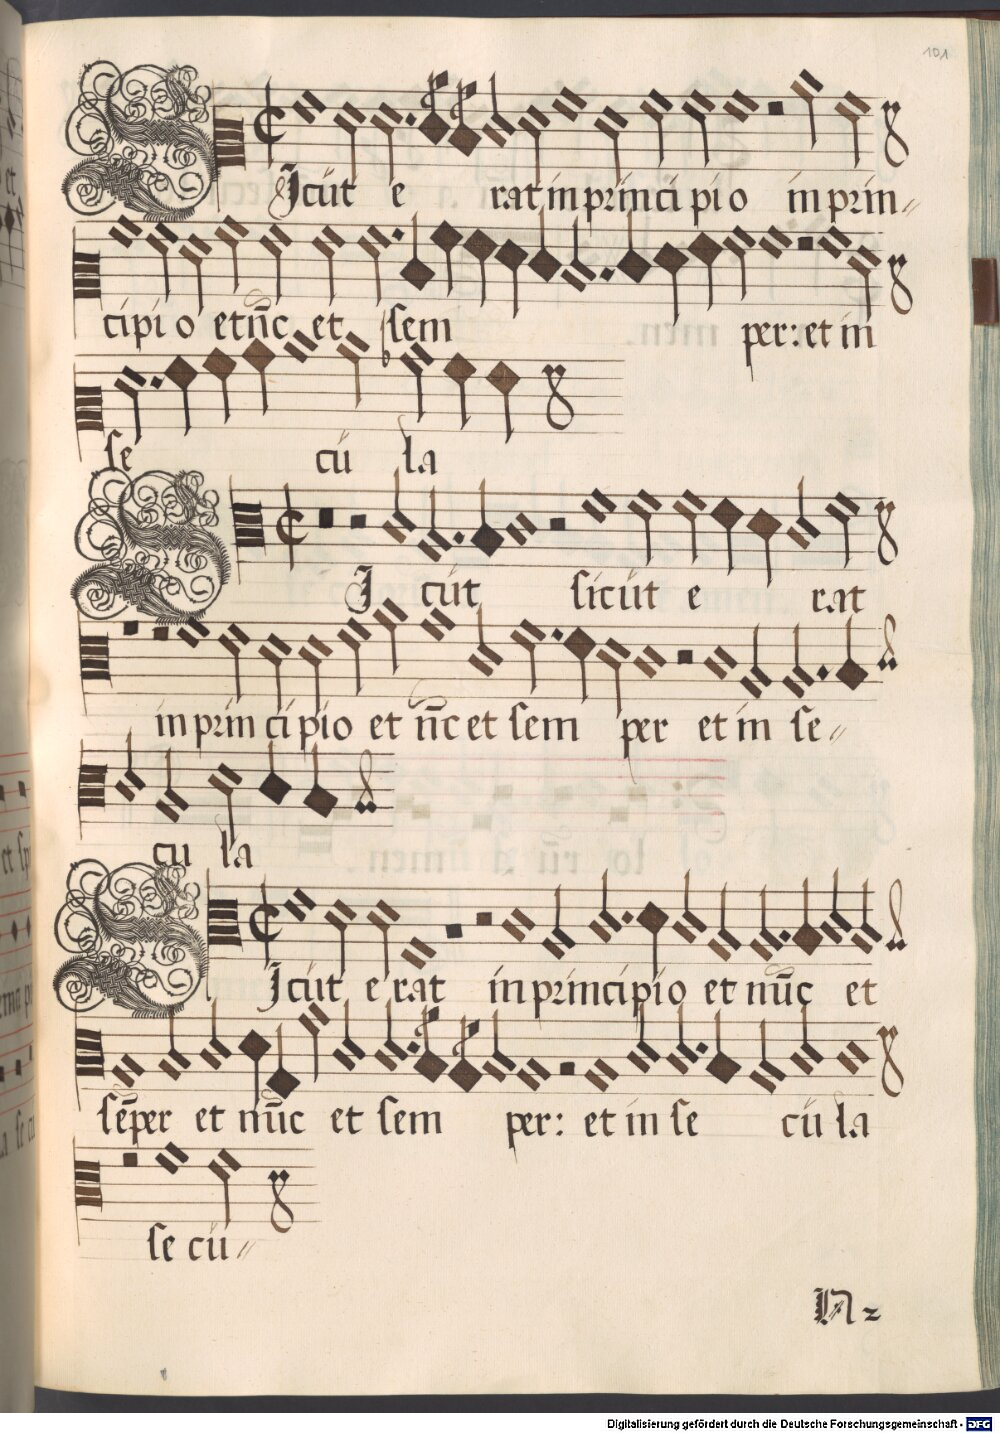 101
SIcut e rat in principio in prin-
cipio et nūc et sem per: et in
se cu la
SI cut sicut e rat
in principio et nūc et sem per et in se-
cu la
SIcut e rat in principio et nūc et
sēper et nūc et sem per: et in se cu la
se cu-
N 2
Digitalisierung gefördert durch die Deutsche Forschungsgemeinschaft - DFG